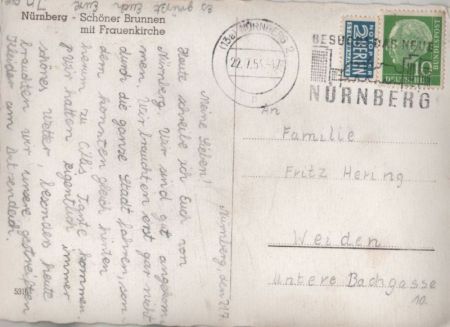 Nürnberg - Schöner Brunnen
mit Frauenkirche
Nürnberg, den 21/7.
Meine Lieben!
Heute schreibe ich Euch von
Nürnberg. Wir sind gut angekom-
men. Wir brauchten erst gar nicht
durch die ganze Stadt fahren, son-
dern konnten gleich hinten
herum zu Cilles Tante kommen.
Wir hatten eigentlich immer
schönes Wetter, besonders heute
brauchten wir unsere gestreiften
Kleider am
Es grüßt Euch
(13a) NÜRNBERG 2
22.7.5
BESUCHT DAS NEUE
NÜRNBERG
NOTOPFER
2 BERLIN
STEUERMARKE
DEUTSCHE BUNDESPOST
10
An
Familie
Fritz Hering
Weiden
Untere Bachgasse
10.